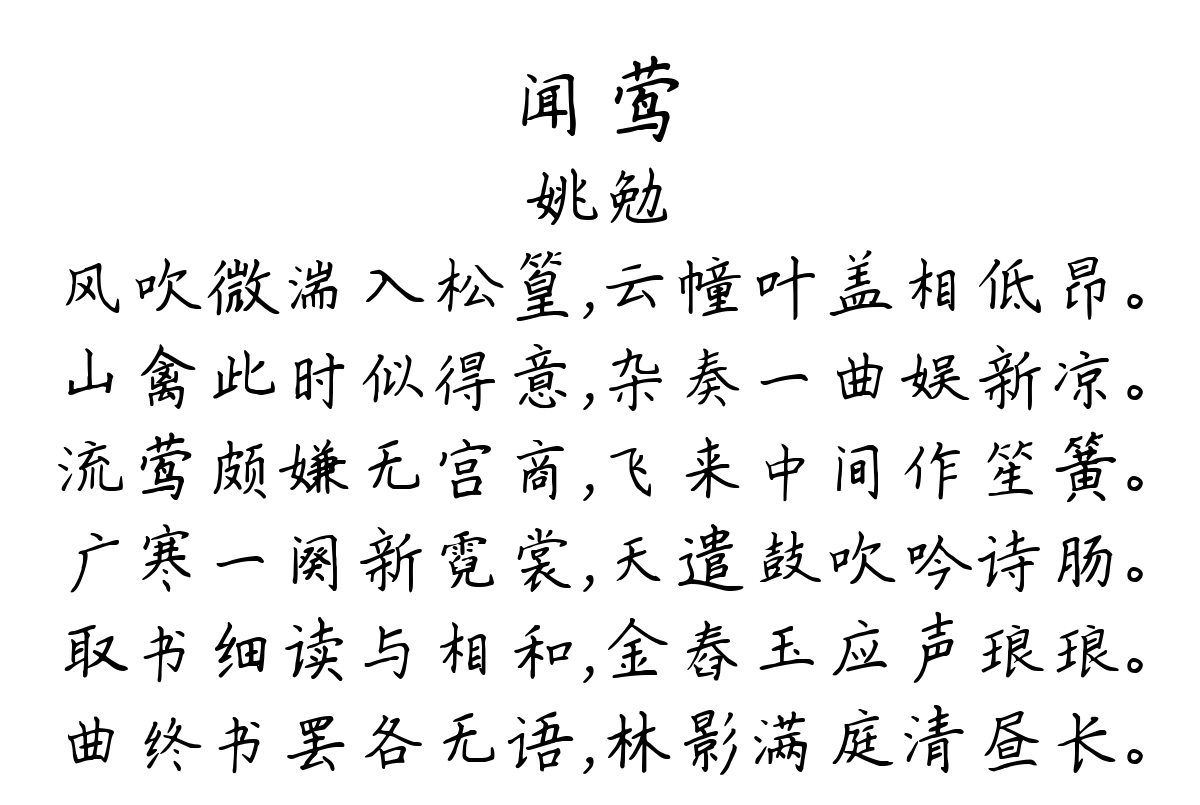 闻莺
姚勉
风吹微湍入松篁,云幢叶盖相低昂。
山禽此时似得意,杂奏一曲娱新凉。
流莺颇嫌无宫商,飞来中间作笙簧。
广寒一阕新霓裳,天遣鼓吹吟诗肠。
取书细读与相和,金舂玉应声琅琅。
曲终书罢各无语,林影满庭清昼长。